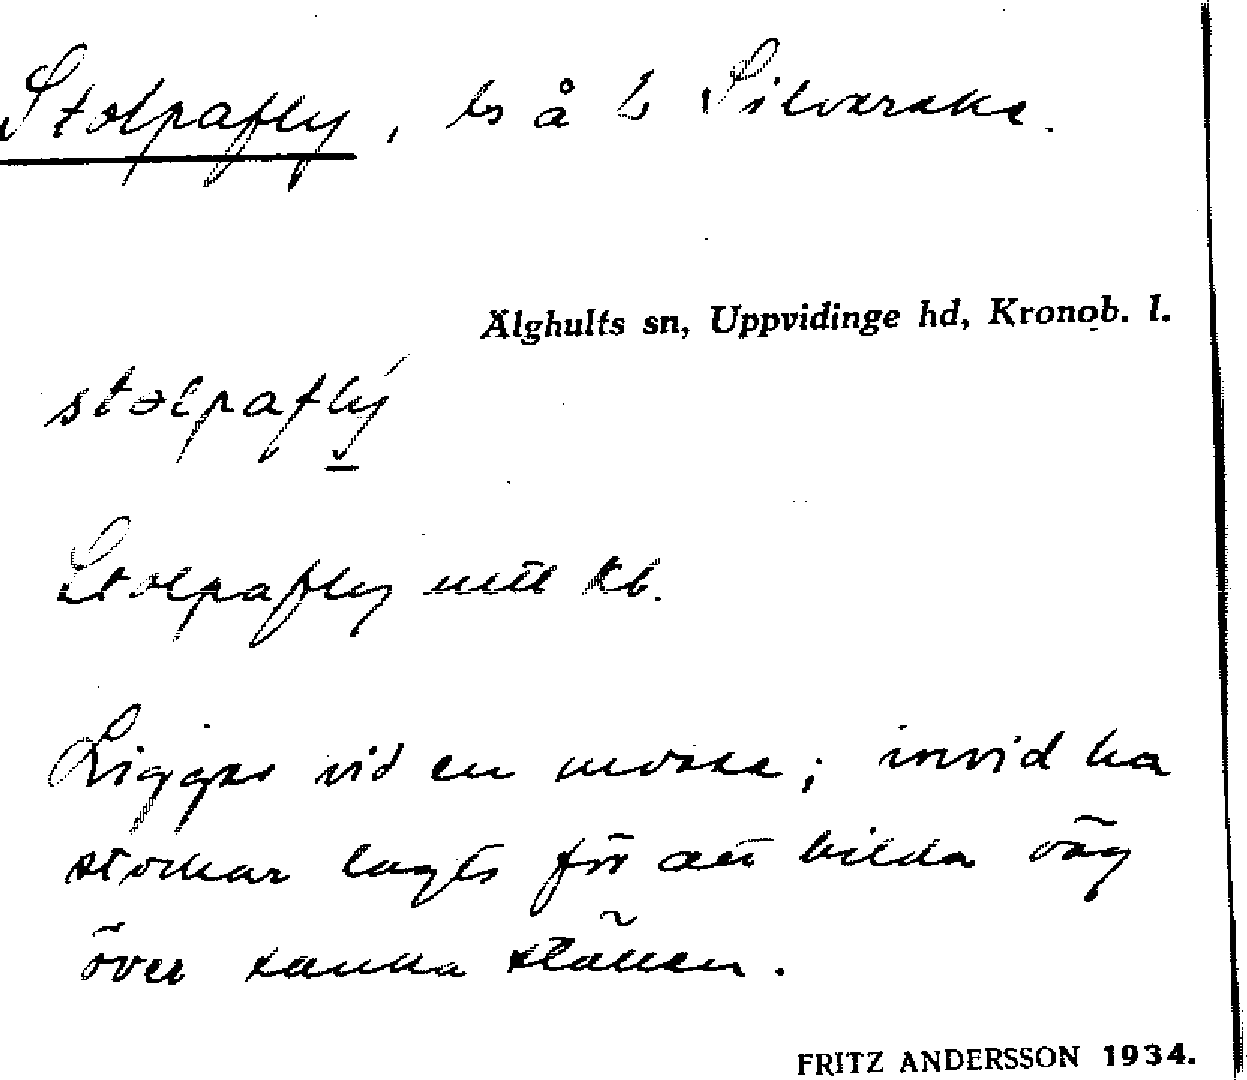 Stolpafly, ls å L Silverake.
Älghults sn, Uppvidinge hd, Kronob. l.
stolpaflý
Stolpafly mtl kb.
Ligger vid en mosse; invid ha
stockar lagts för att bilda väg
över sanka ställen.
FRITZ ANDERSSON 1934.